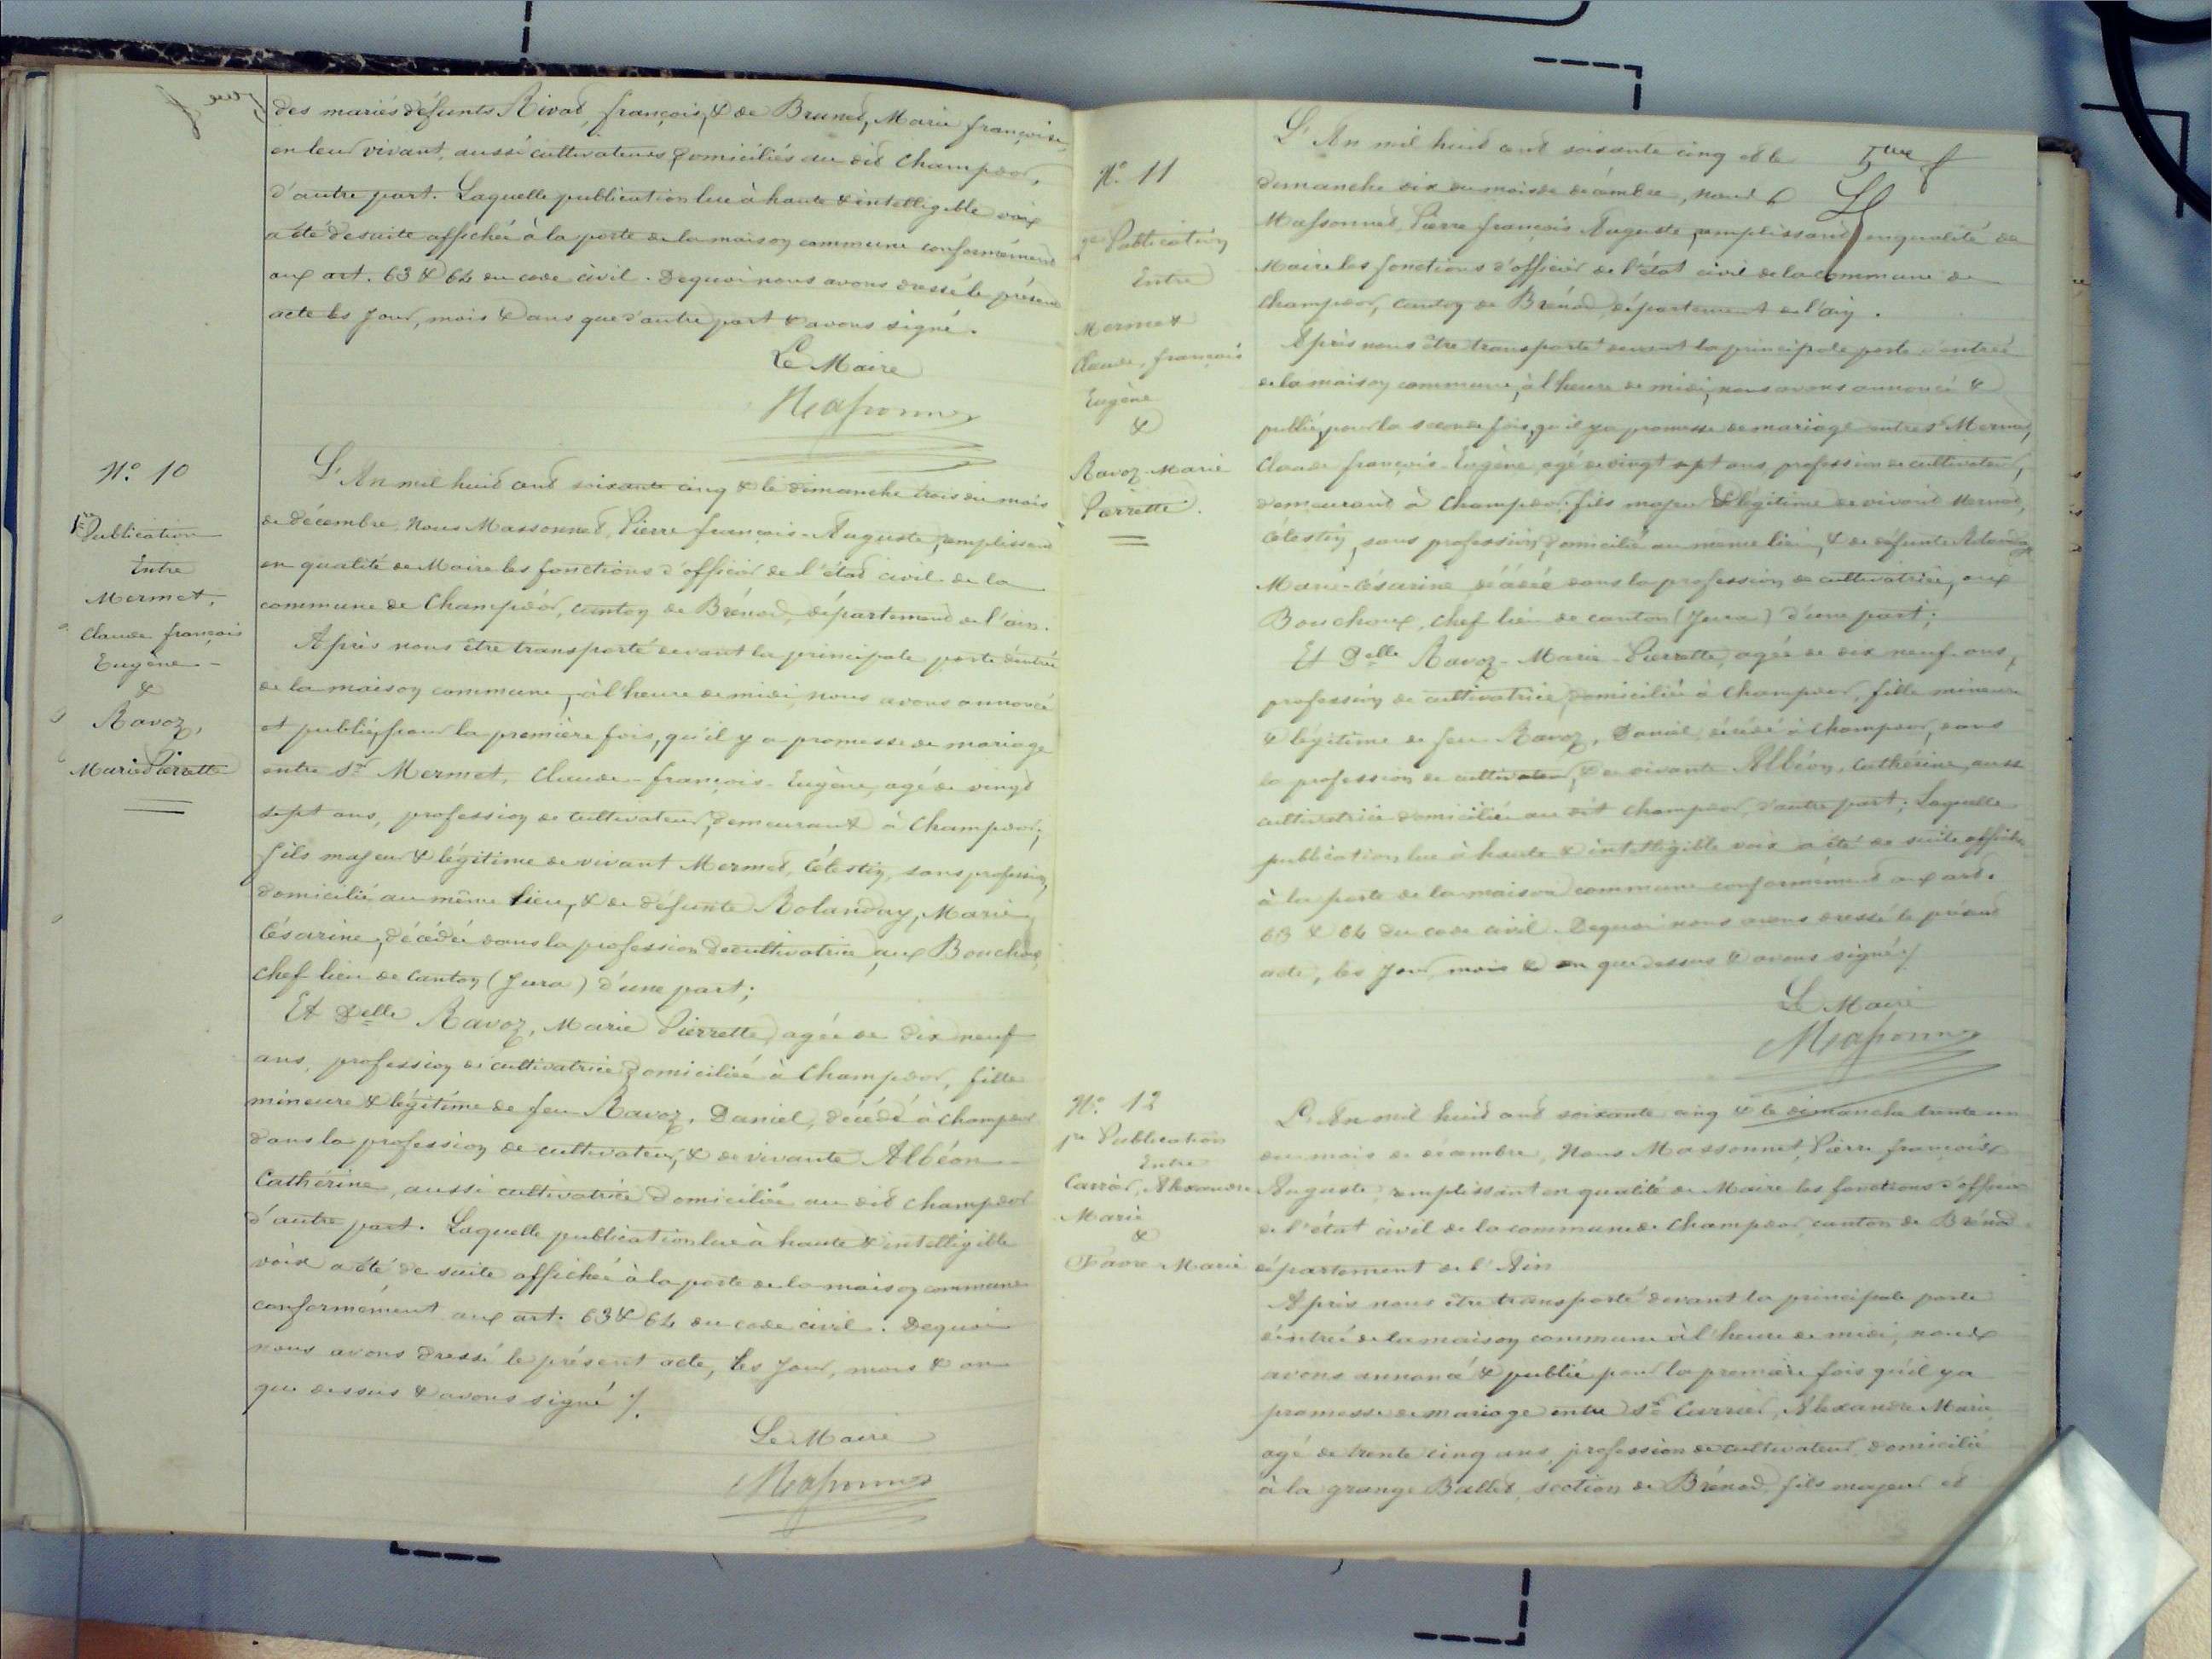 des mariés défunts Rivat, françois, & de Brunet, Marie françoise,
en leur vivant, aussi cultivateurs, domiciliés au dit Champdor,
d'autre part. Laquelle publication lue à haute & intelligible voix
a été de suite affichée à la porte de la maison commune conformément
aux art. 63 & 64 du code civil. De quoi nous avons dressé le présent
acte les jour, mois & ans que d'autre part & avons signé.
Le Maire
Massonnet
N.° 10
1re Publication
Entre
Mermet,
Claude françois
Eugène
&
Ravoz,
Marie Pierrette
L'An mil huit cent soixante cinq & le dimanche trois du mois
de décembre, Nous Massonnet, Pierre françois-Auguste, remplissant
en qualité de Maire les fonctions d'officier de l'état civil de la
commune de Champdor, canton de Brénod, département de l'ain.
Après nous être transporté devant la principale porte d'entrée
de la maison commune, à l'heure de midi, nous avons annoncé
et publié, pour la première fois, qu'il y a promesse de mariage
entre Sr Mermet, Claude-françois-Eugène, agé de vingt
sept ans, profession de cultivateur, demeurant à Champdor,
fils majeur & légitime de vivant Mermet, Célestin, sans profession,
domicilié au même lieu, & de défunte Rolanday, Marie
Césarine, décédée dans la profession de cultivatrice, aux Bouchoux,
chef lieu de canton (Jura) d'une part;
Et Delle Ravoz, Marie Pierrette, agée de dix neuf
ans, profession de cultivatrice, domiciliée à Champdor, fille
mineure & légitime de feu Ravoz, Daniel, décédé à Champdor
dans la profession de cultivateur, & de vivante Albéon
Cathérine, aussi cultivatrice domiciliée au dit Champdor
d'autre part. Laquelle publication lue à haute & intelligible
voix a été de suite affichée à la porte de la maison commune
conformément aux art. 63 & 64 du code civil. De quoi
nous avons dressé le présent acte, les jour, mois & an
que dessus & avons signé ./.
Le Maire
Massonnet
5me f
N.° 11
2e Publication
Entre
Mermet
Claude, françois
Eugène
&
Ravoz Marie
Pierrette.
L'An mil huit cent soixante cinq et le
dimanche dix du mois de décembre, nous
Massonnet, Pierre françois Auguste, remplissant en qualité de
Maire les fonctions d'officier de l'état civil de la commune de
Champdor, canton de Brénod, département de l'ain.
Après nous être transporté devant la principale porte d'entrée
de la maison commune, à l'heure de midi, nous avons annoncé &
publié, pour la seconde fois, qu'il y a promesse de mariage entre Sr Mermet,
Claude françois-Eugène, agé de vingt sept ans, profession de cultivateur,
demeurant à Champdor, fils majeur & légitime de vivant Mermet,
Célestin, sans profession, domicilié au même lieu, & de défunte
Marie-Césarine décédée dans la profession de cultivatrice, aux
Bouchoux, chef lieu de canton (Jura) d'une part;
Et Delle Ravoz-Marie-Pierrette, agée de dix neuf ans,
profession de cultivatrice, domiciliée à Champdor, fille mineure
& légitime de feu Ravoz, Daniel, décédé à Champdor, dans
la profession de cultivateur, & de vivante Albéon, Cathérine, aussi
cultivatrice domiciliée au dit Champdor, d'autre part; Laquelle
publication lue à haute & intelligible voix a été de suite affichée
à la porte de la maison commune conformément aux art.
63 & 64 du code civil. De quoi nous avons dressé le présent
acte, les jour, mois & an que dessus & avons signé ./
Le Maire
Massonnet
N.° 12
1re Publication
Entre
Carrier, Alexandre
Marie
&
Favre Marie
L'An mil huit cent soixante cinq & le dimanche trente un
du mois de décembre, Nous Massonnet, Pierre françois
Auguste, remplissant en qualité de Maire les fonctions d'officier
de l'état civil de la commune de Champdor, canton de Brénod
département de l'Ain
Après nous être transporté devant la principale porte
d'entrée de la maison commune à l'heure de midi, nous
avons annoncé & publié pour la première fois qu'il y a
promesse de mariage entre Sr Carrier, Alexandre Marie
agé de trente cinq ans, profession de cultivateur, domicilié
à la grange Ballet, section de Brénod, fils majeur et